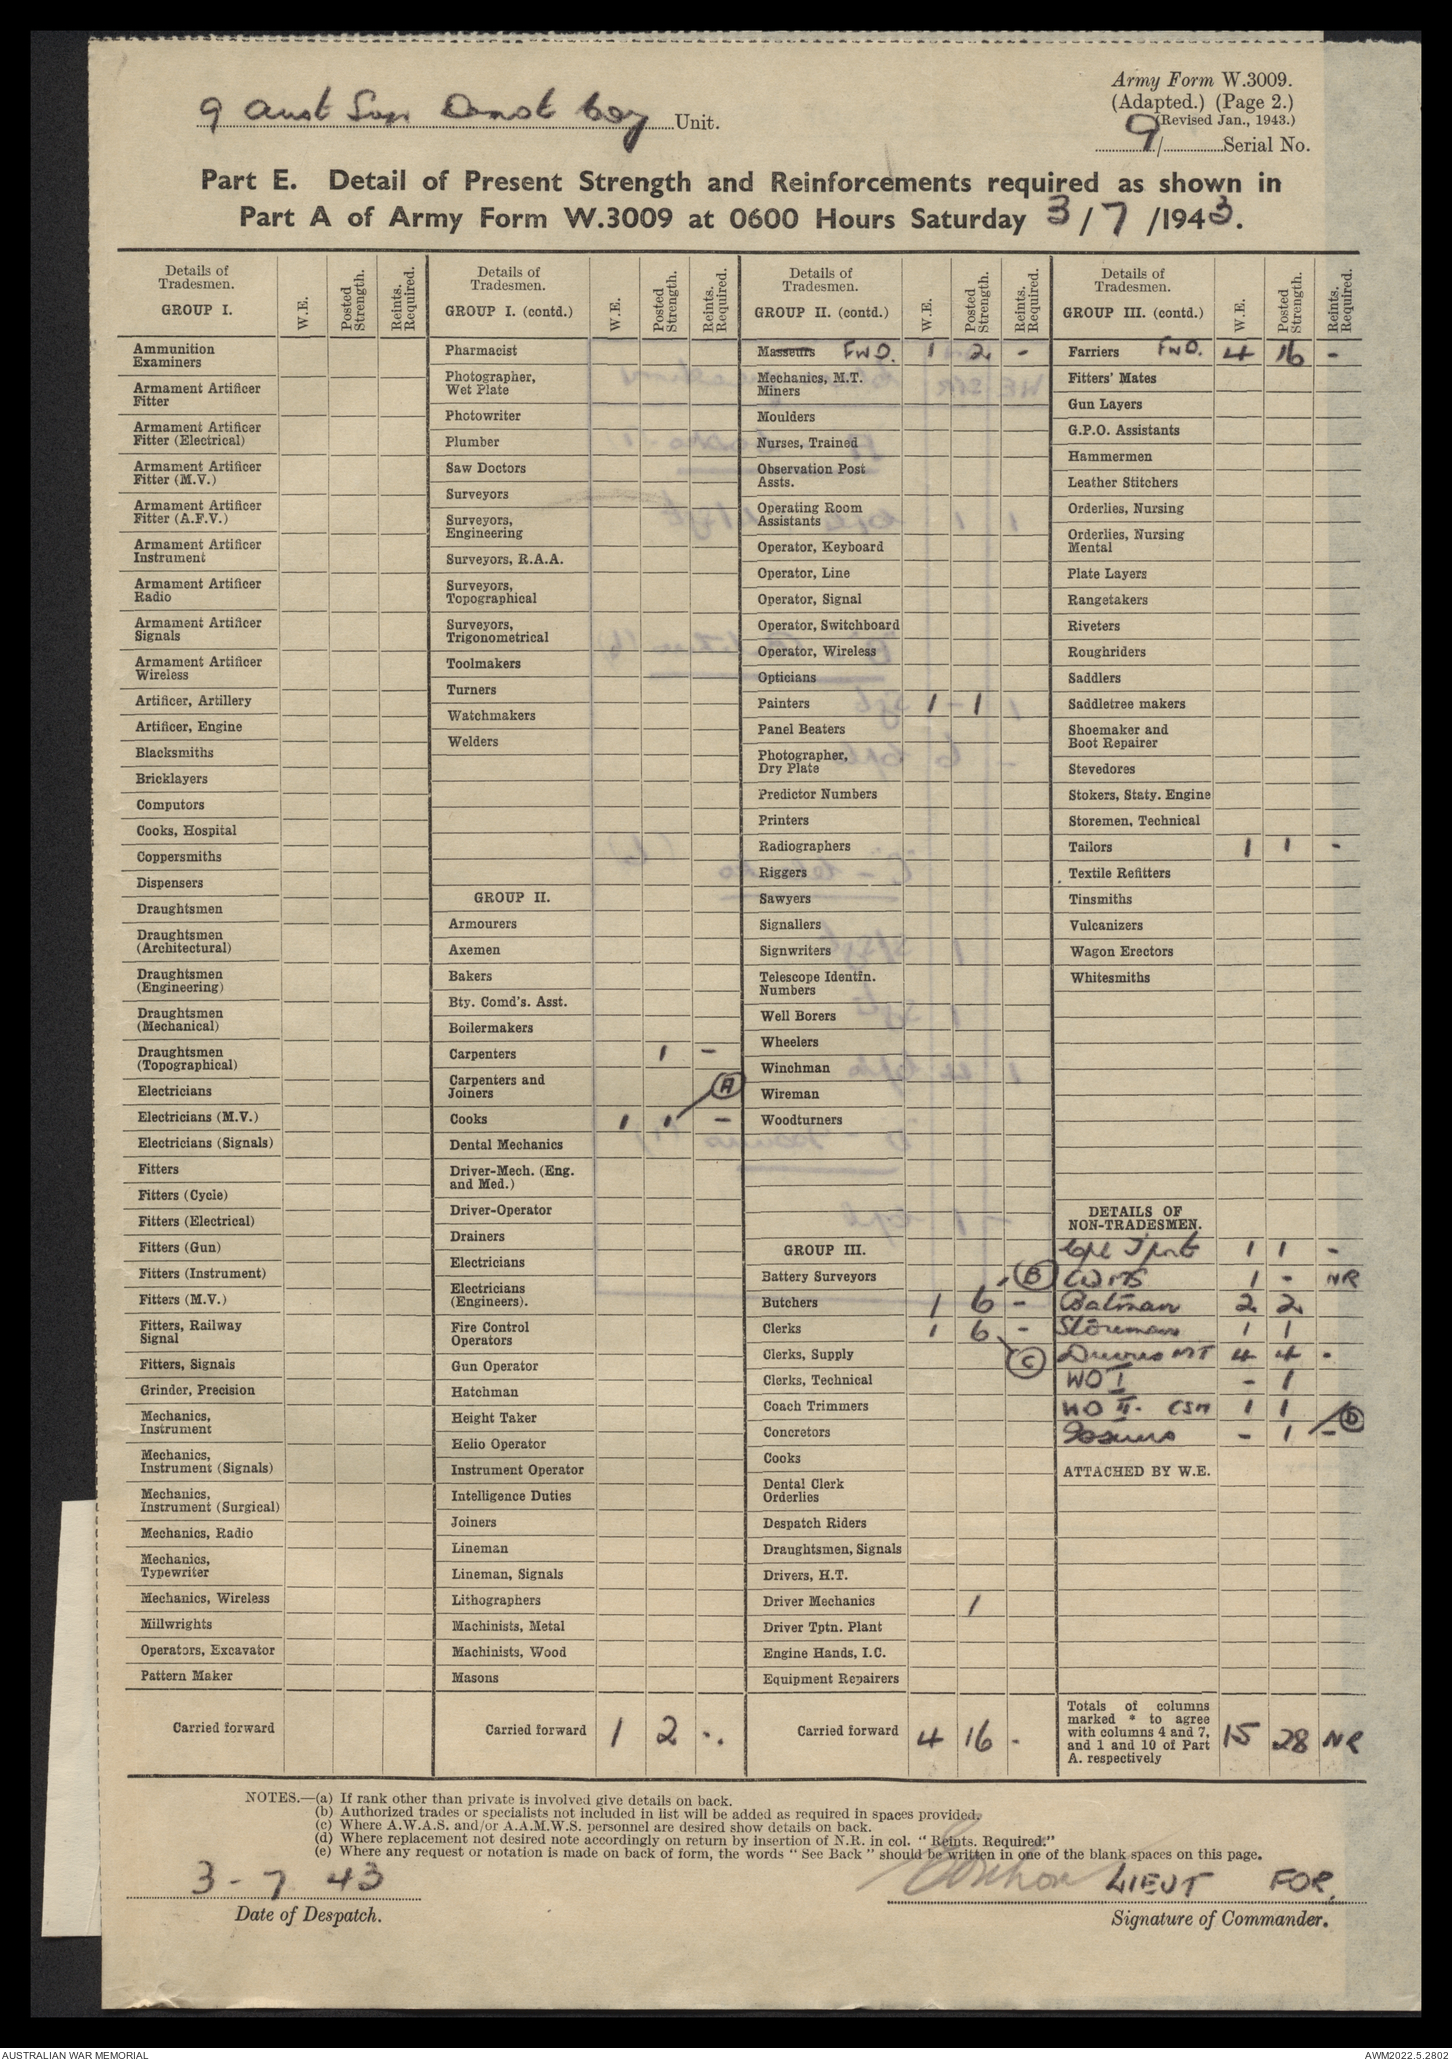 Army Form W.3009.
(Adapted.) (Page 2.)
(Revised Jan., 1943.)
9 Aust Sup Depot Coy Unit.
9/ Serial No.
Part E. Detail of Present Strength and Reinforcements required as shown in
Part A of Army Form W.3009 at 0600 Hours Saturday 3/7/1943.
Details of Tradesmen. GROUP I. W.E. Posted Strength. Reints. Required.
Ammunition Examiners
Armament Artificer Fitter
Armament Artificer Fitter (Electrical)
Armament Artificer Fitter (M.V.)
Armament Artificer Fitter (A.F.V.)
Armament Artificer Instrument
Armament Artificer Radio
Armament Artificer Signals
Armament Artificer Wireless
Artificer, Artillery
Artificer, Engine
Blacksmiths
Bricklayers
Computors
Cooks, Hospital
Coppersmiths
Dispensers
Draughtsmen
Draughtsmen (Architectural)
Draughtsmen (Engineering)
Draughtsmen (Mechanical)
Draughtsmen (Topographical)
Electricians
Electricians (M.V.)
Electricians (Signals)
Fitters
Fitters (Cycle)
Fitters (Electrical)
Fitters (Gun)
Fitters (Instrument)
Fitters (M.V.)
Fitters, Railway Signal
Fitters, Signals
Grinder, Precision
Mechanics, Instrument
Mechanics, Instrument (Signals)
Mechanics, Instrument (Surgical)
Mechanics, Radio
Mechanics, Typewriter
Mechanics, Wireless
Millwrights
Operators, Excavator
Pattern Maker
Carried forward
Details of Tradesmen. GROUP I. (contd.) W.E. Posted Strength. Reints. Required.
Pharmacist
Photographer, Wet Plate
Photowriter
Plumber
Saw Doctors
Surveyors
Surveyors, Engineering
Surveyors, R.A.A.
Surveyors, Topographical
Surveyors, Trigonometrical
Toolmakers
Turners
Watchmakers
Welders
GROUP II.
Armourers
Axemen
Bakers
Bty. Comd's. Asst.
Boilermakers
Carpenters 1 -
Carpenters and Joiners (A)
Cooks 1 1 -
Dental Mechanics
Driver-Mech. (Eng. and Med.)
Driver-Operator
Drainers
Electricians
Electricians (Engineers).
Fire Control Operators
Gun Operator
Hatchman
Height Taker
Helio Operator
Instrument Operator
Intelligence Duties
Joiners
Lineman
Lineman, Signals
Lithographers
Machinists, Metal
Machinists, Wood
Masons
Carried forward 1 2 -.
Details of Tradesmen. GROUP II. (contd.) W.E. Posted Strength. Reints. Required.
Masseurs FWD. 1 2 -
Mechanics, M.T.
Miners
Moulders
Nurses, Trained
Observation Post Assts.
Operating Room Assistants
Operator, Keyboard
Operator, Line
Operator, Signal
Operator, Switchboard
Operator, Wireless
Opticians
Painters 1 - 1
Panel Beaters
Photographer, Dry Plate
Predictor Numbers
Printers
Radiographers
Riggers
Sawyers
Signallers
Signwriters
Telescope Identfn. Numbers
Well Borers
Wheelers
Winchman
Wireman
Woodturners
GROUP III.
Battery Surveyors (B)
Butchers 1 6 -
Clerks 1 6 -
Clerks, Supply (C)
Clerks, Technical
Coach Trimmers
Concretors
Cooks
Dental Clerk Orderlies
Despatch Riders
Draughtsmen, Signals
Drivers, H.T.
Driver Mechanics 1
Driver Tptn. Plant
Engine Hands, I.C.
Equipment Repairers
Carried forward 4 16 -
Details of Tradesmen. GROUP III. (contd.) W.E. Posted Strength. Reints. Required.
Farriers FWD. 4 16 -
Fitters' Mates
Gun Layers
G.P.O. Assistants
Hammermen
Leather Stitchers
Orderlies, Nursing
Orderlies, Nursing Mental
Plate Layers
Rangetakers
Riveters
Roughriders
Saddlers
Saddletree makers
Shoemaker and Boot Repairer
Stevedores
Stokers, Staty. Engine
Storemen, Technical
Tailors 1 1 -
Textile Refitters
Tinsmiths
Vulcanizers
Wagon Erectors
Whitesmiths
DETAILS OF NON-TRADESMEN.
Cpl Tport 1 1 -
CQMS 1 - NR
Batman 2 2
Storeman 1 1
Drivers MT 4 4 -
WO I - 1
WO II. CSM 1 1 (D)
Issuers - 1 -
ATTACHED BY W.E.
Totals of columns marked * to agree with columns 4 and 7, and 1 and 10 of Part A. respectively 15 28 NR
NOTES.—(a) If rank other than private is involved give details on back.
(b) Authorized trades or specialists not included in list will be added as required in spaces provided.
(c) Where A.W.A.S. and/or A.A.M.W.S. personnel are desired show details on back.
(d) Where replacement not desired note accordingly on return by insertion of N.R. in col. "Reints. Required."
(e) Where any request or notation is made on back of form, the words "See Back" should be written in one of the blank spaces on this page.
3 - 7 43
LIEUT FOR.
Date of Despatch.
Signature of Commander.
AUSTRALIAN WAR MEMORIAL
AWM2022.5.2802